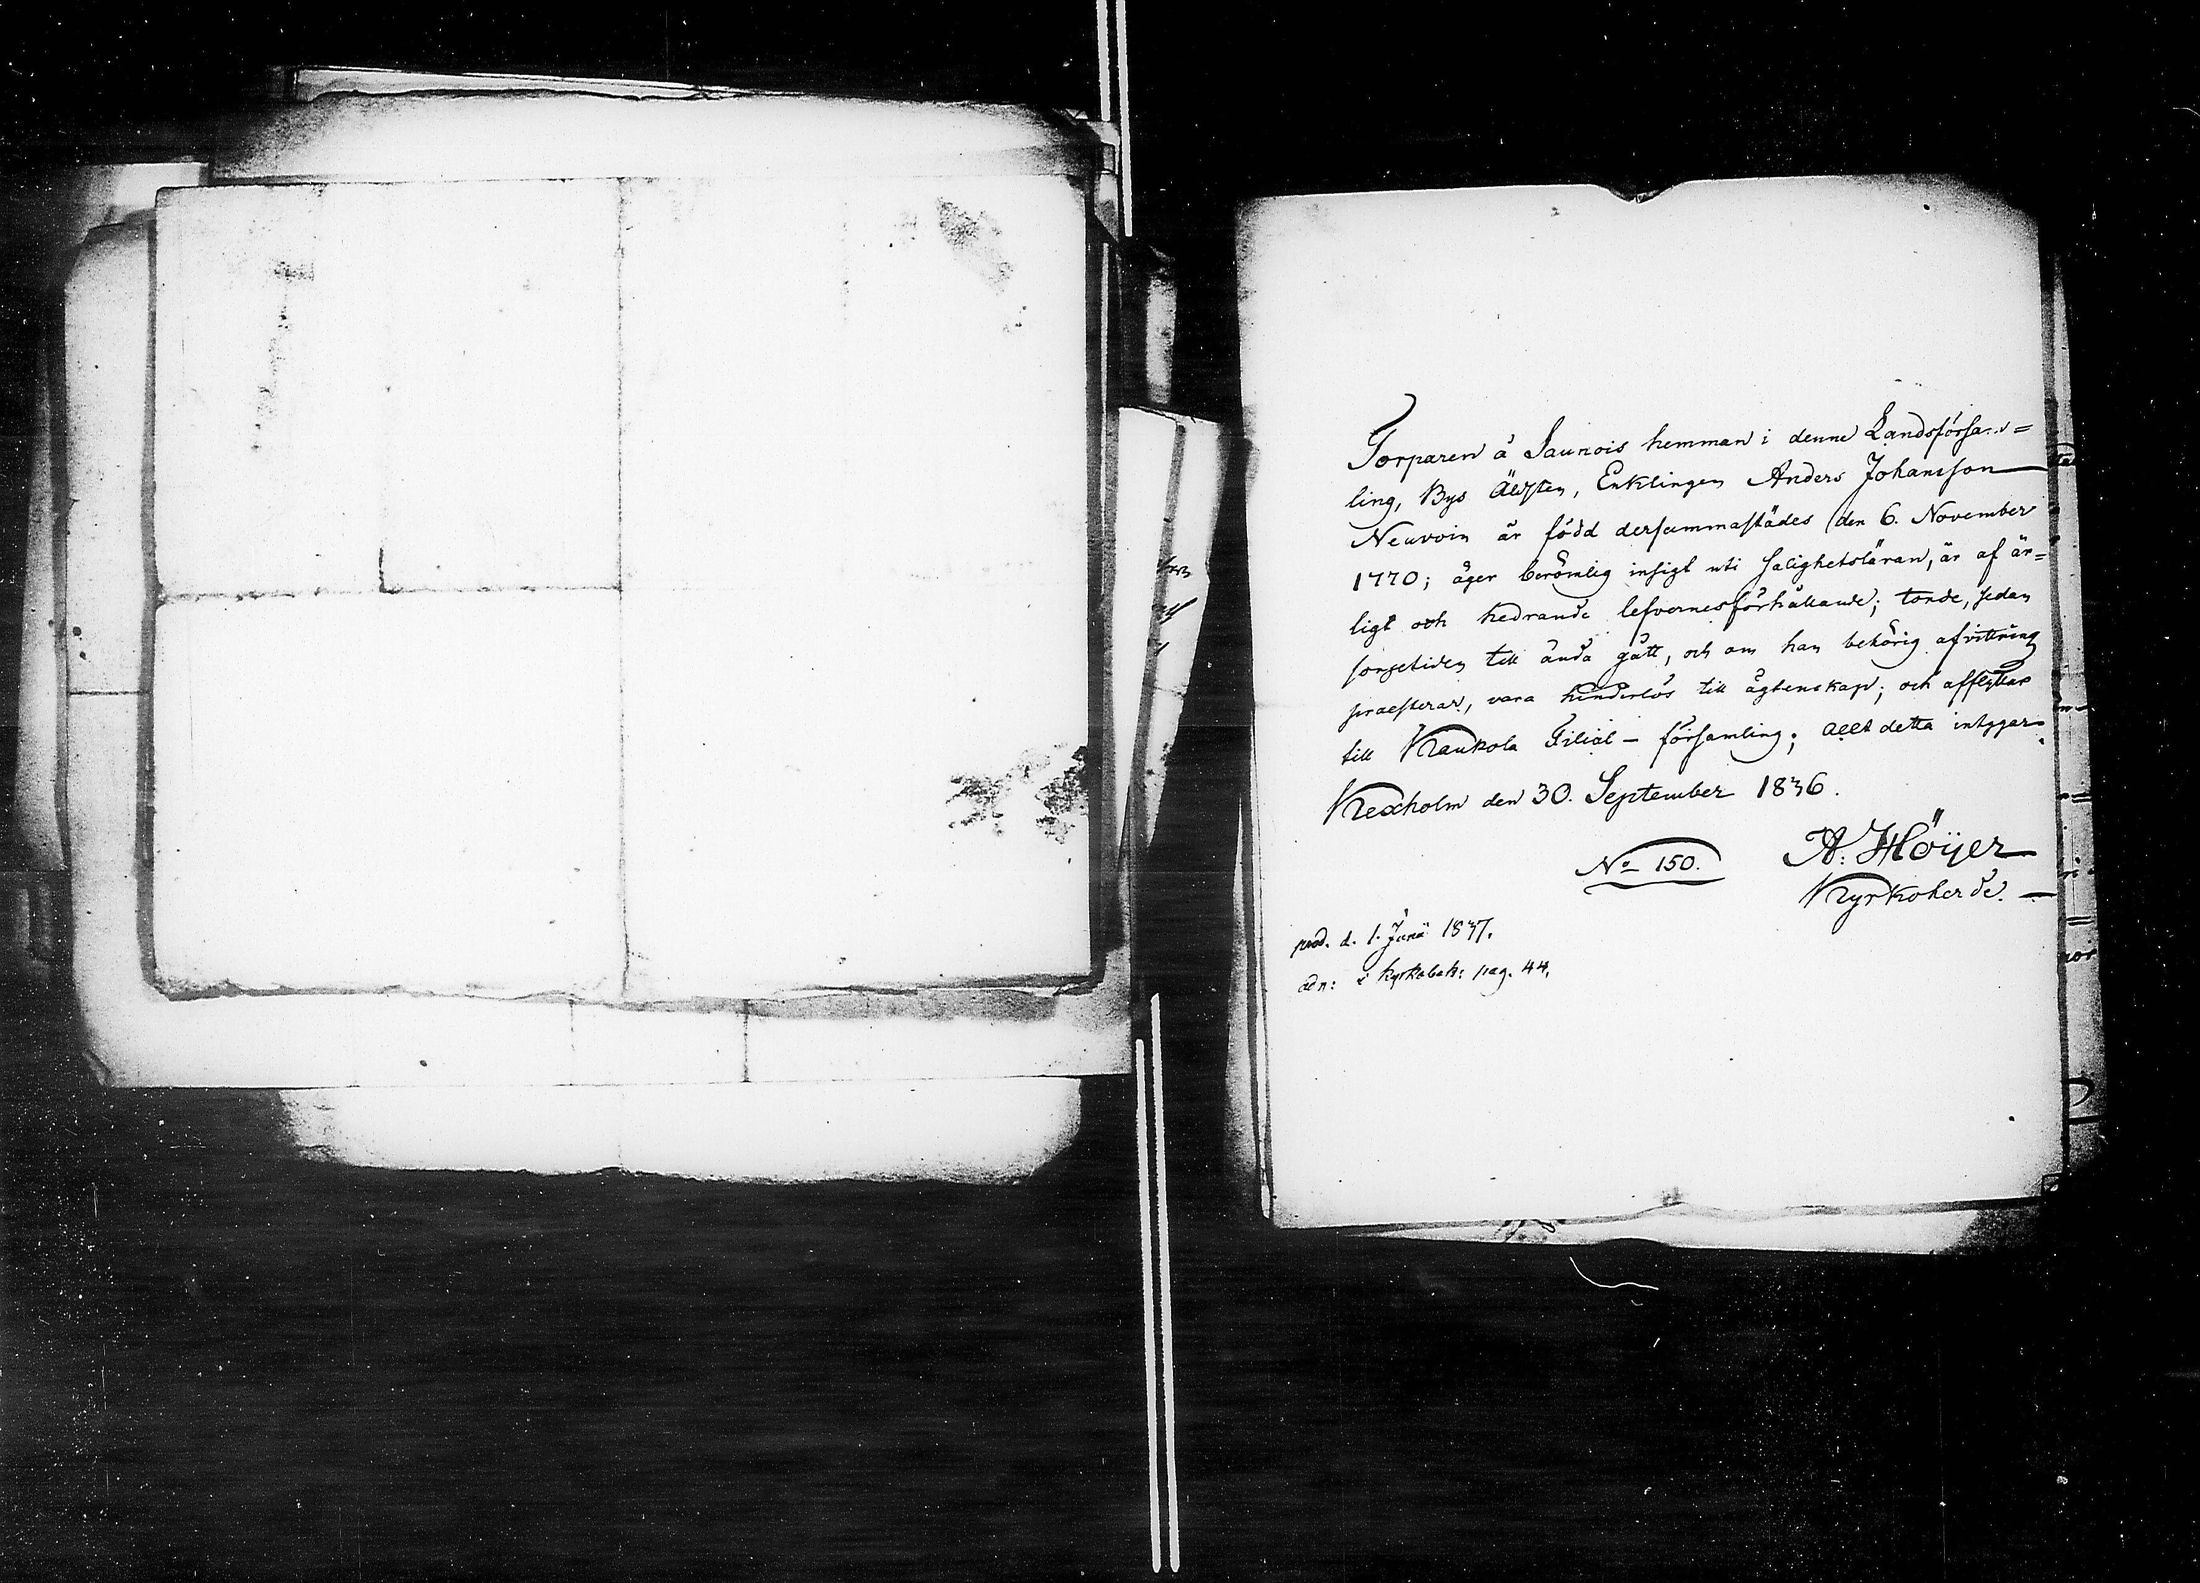 Torparen å Saunois hemman i denne Landsförsam=
ling, Bys Äldsten, Enklingen Anders Johansson
Neuvoin är född dersammastädes den 6. November
1770; äger berömlig insigt uti Salighetsläran, är af är=
ligt och hedrande lefvernesförhållande; torde, sedan
sorgetiden till ända gått, och om han behörig afvittring
praesterar, vara hinderlös till ägtenskap; och afflyttar
till Kaukola Filial-församling; allt detta intygar.
Kexholm den 30. September 1836.
No 150.
A. Höijer
Kyrkoherde.
prod. d. 1. Junii 1837.
adn: i kyrkobok: pag. 44.